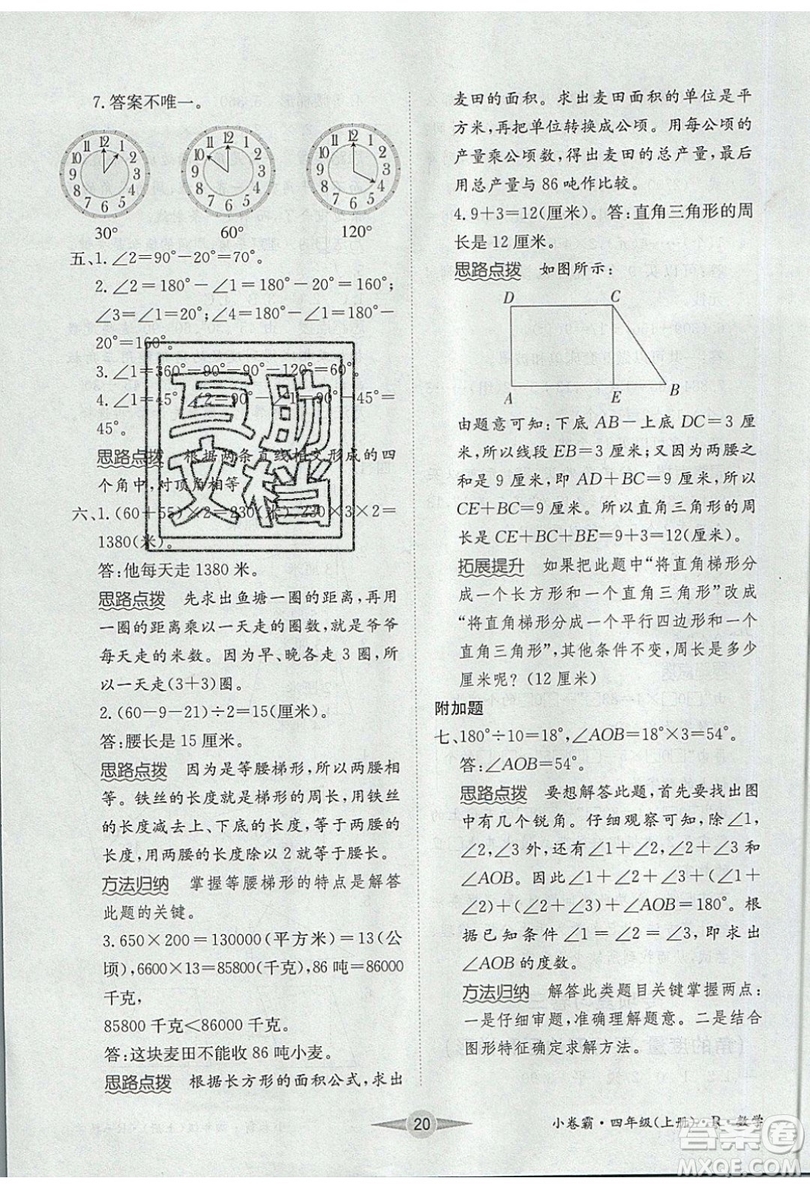 7. 答案不唯一。
30° 60° 120°
五、1. ∠2=90°-70°=20°。
2. ∠2=180°-∠1=180°-20°=160°;
∠3=∠1=20°;∠4=180°-∠1=180°-
20°=160°。
3. ∠1=360°-90°-90°-120°=60°。
4. ∠1=45°,∠2=180°-90°-∠1=90°-45°=
45°。
思路点拨 根据两条直线相交形成的四
个角中,对顶角相等。
六、1. (60+55)×2=230(米),230×3×2=
1380(米)。
答:他每天走 1380 米。
思路点拨 先求出鱼塘一圈的距离,再用
一圈的距离乘以一天走的圈数,就是爷爷
每天走的米数。因为早、晚各走 3 圈,共
走了(3+3)圈。
2. (60-9-21)÷2=15(厘米)。
答:腰长是 15 厘米。
思路点拨 因为是等腰梯形,所以两腰相
等。铁丝的长度就是梯形的周长,用铁丝
的长度减去上、下底的长度,等于两腰的
长度,用两腰的长度除以 2 就等于腰长。
方法归纳 掌握等腰梯形的特点是解答
此题的关键。
3. 650×200=130000(平方米)=13(公
顷),6600×13=85800(千克),86 吨=86000
千克,
85800 千克<86000 千克。
答:这块麦田不能收 86 吨小麦。
思路点拨 根据长方形的面积公式,求出
麦田的面积。求出麦田面积的单位是平
方米,再把单位转换成公顷。用每公顷的
产量乘公顷数,得出麦田的总产量,最后
用总产量与 86 吨作比较。
4. 9+3=12(厘米)。答:直角三角形的周
长是 12 厘米。
思路点拨 如图所示:
D C
A E B
由题意可知:下底 AB-上底 DC=3 厘
米,所以线段 EB=3 厘米;又因为两腰之
和是 9 厘米,即 AD+BC=9 厘米,所以
CE+BC=9 厘米。所以直角三角形的周
长是 CE+BC+BE=9+3=12(厘米)。
拓展提升 如果把此题中“将直角梯形分
成一个长方形和一个直角三角形”改成
“将直角梯形分成一个平行四边形和一个
直角三角形”,其他条件不变,周长是多少
厘米呢?(12 厘米)
附加题
七、180°÷10=18°,∠AOB=18°×3=54°。
答:∠AOB=54°。
思路点拨 要想解答此题,首先要找出图
中有几个锐角。仔细观察可知,有∠1、
∠2、∠3、∠1+∠2、∠2+∠3 和
∠AOB。因此,∠1+∠2+∠3+∠1+
∠2+∠2+∠3+∠AOB=180°。又根
据已知条件∠1=∠2=∠3,即求出
∠AOB的度数。
方法归纳 解答此类题目关键掌握两点:
一是仔细审题,准确理解题意。二是结合
图形特征确定求解方法。
20
小卷霸·四年级(上册)·R·数学
互助
文档
答案圈
MXQE.COM